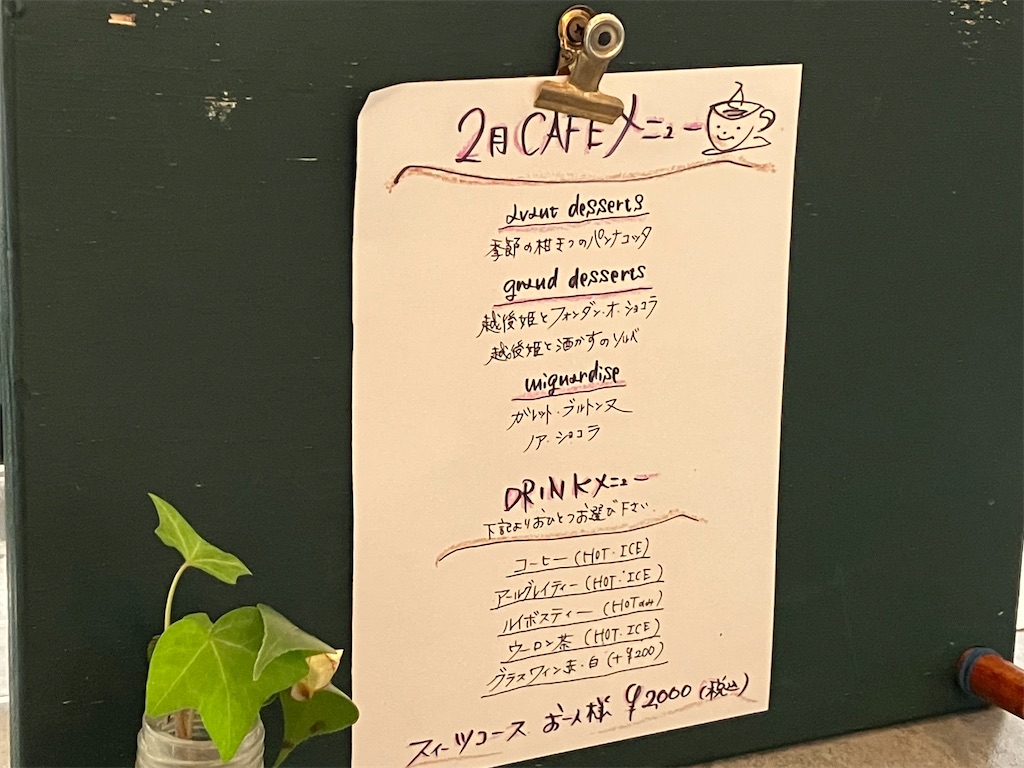 2月 CAFEメニュー
avant desserts
季節の柑きつのパンナコッタ
grand desserts
越後姫とフォンダン・オ・ショコラ
越後姫と酒かすのソルベ
mignardise
ガレット・ブルトンヌ
ノア・ショコラ
DRINKメニュー
下記よりおひとつお選び下さい
コーヒー (HOT・ICE)
アールグレイティー (HOT・ICE)
ルイボスティー (HOTのみ)
ウーロン茶 (HOT・ICE)
グラスワイン赤・白 (+¥200)
スィーツコース お一人様 ¥2000 (税込)